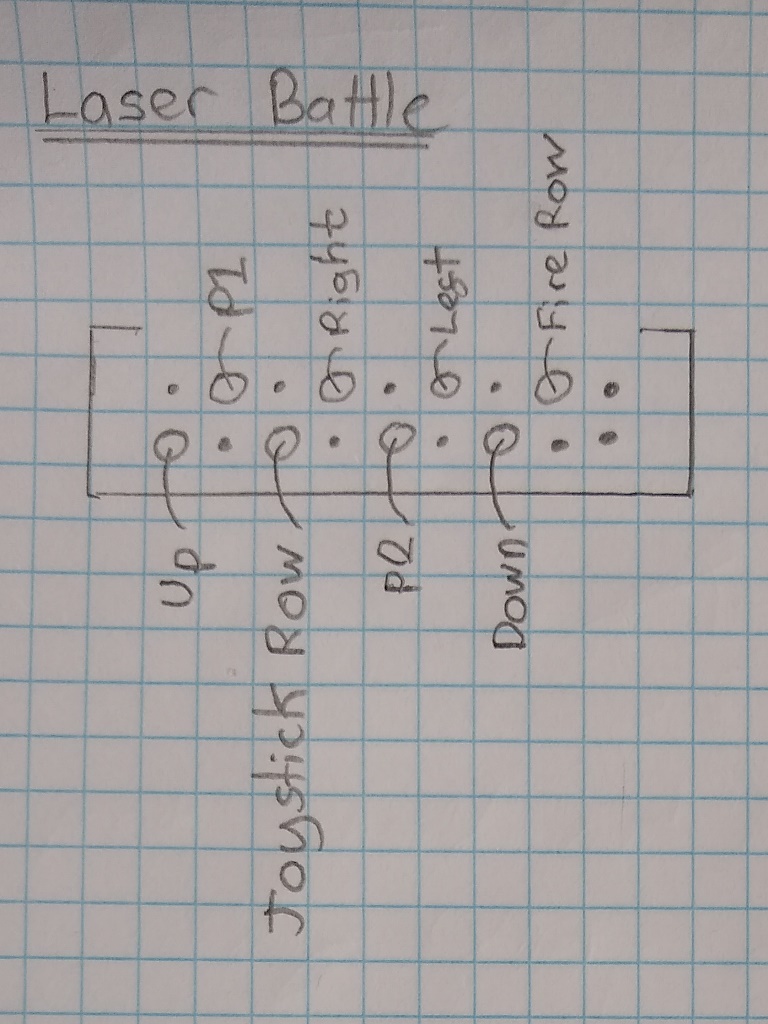 Laser Battle
P1
Right
Left
Fire Row
Up
Joystick Row
P2
Down